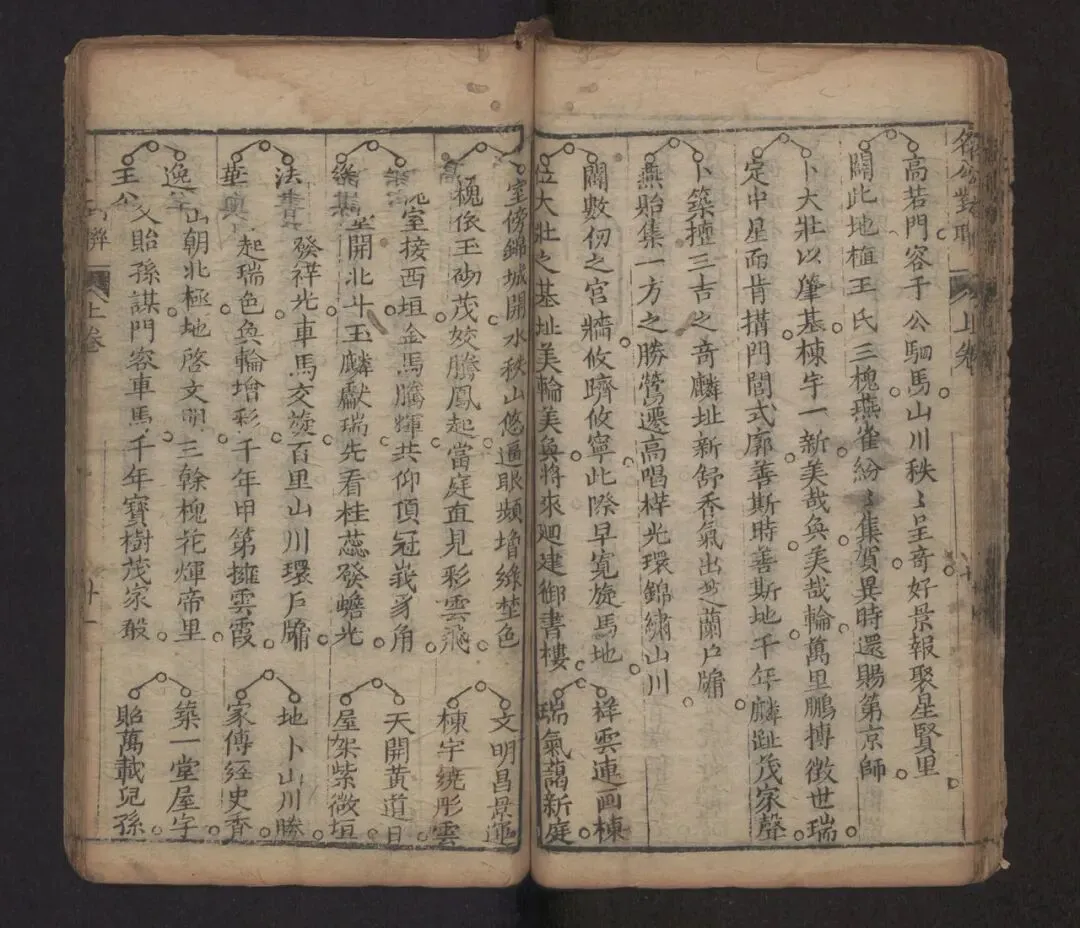 名公對聯 上卷
高若門容于公駟馬山川秩〻呈奇好景報聚星賢里
闢此地植王氏三槐燕雀紛〻集賀異時還賜第京師
卜大壯以肇基棟宇一新美哉奐美哉輪萬里鵬摶徵世瑞
定中星而肯搆門閭式廓善斯時善斯地千年麟趾茂家聲
卜築擅三吉之奇麟址新舒香氣出芝蘭戶牖
燕貽集一方之勝鶯遷高唱榉光環錦繡山川
闢數仞之宮牆攸躋攸寧此際早寬旋馬地
位大壯之基址美輪美奐將來廻建御書樓
祥雲連画棟
瑞氣藹新庭
室傍錦城開水秩山悠逼眼頻增綠埜色
槐依玉砌茂姣騰鳳起當庭直見彩雲飛
文明昌景運
棟宇繞彤雲
室接西垣金馬騰輝共仰頂冠峩豸角
堂開北斗玉麟獻瑞先看桂蕊發蟾光
天開黃道日
屋架紫微垣
法書發祥光車馬交旋百里山川環戶牖
華奧起瑞色奐輪增彩千年甲第擁雲霞
地卜山川勝
家傳經史香
逸 山朝北極地啓文明三餘槐花煇帝里
王公 父貽孫謀門容車馬千年寶樹茂家聲
築一堂屋宇
貽萬載兒孫
上卷 十一